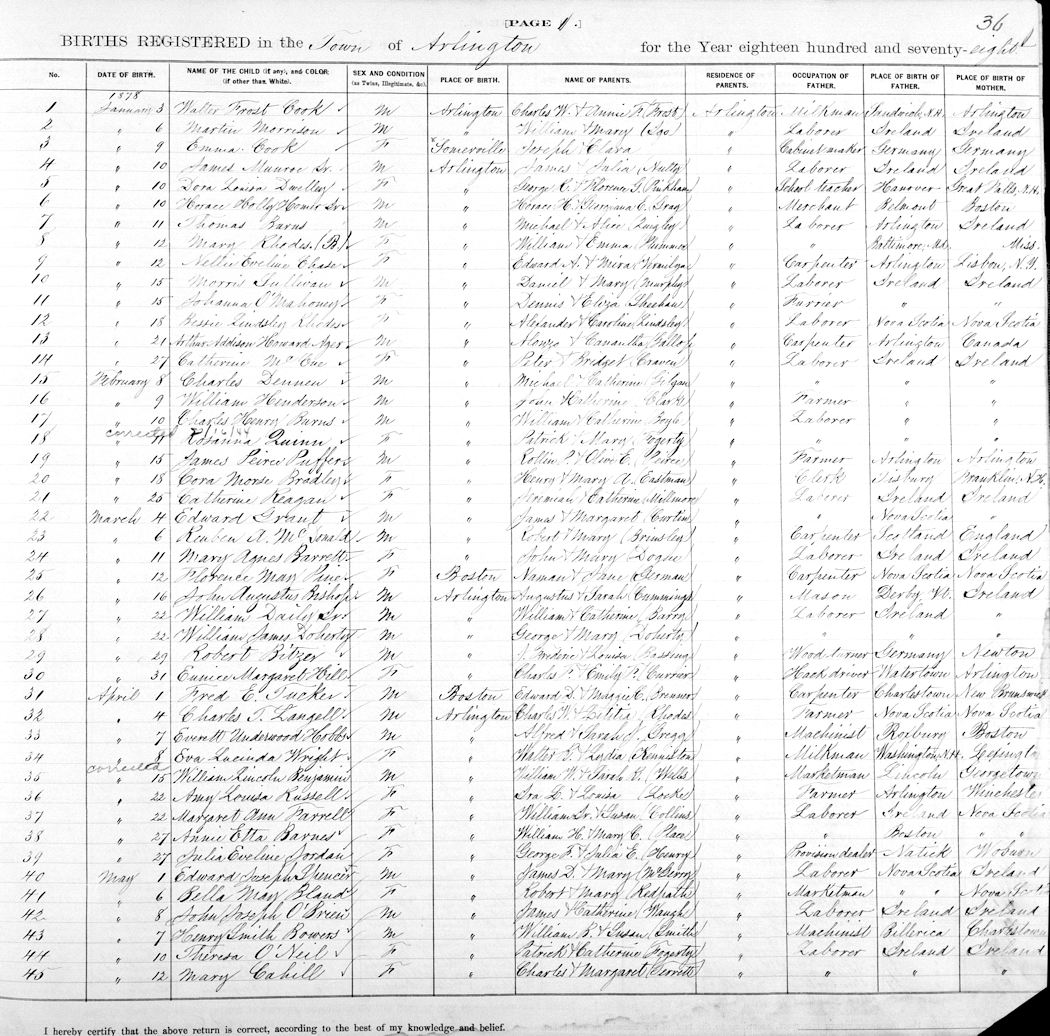 [PAGE 1.]
36
BIRTHS REGISTERED in the Town of Arlington for the Year eighteen hundred and seventy-eight
No. DATE OF BIRTH. NAME OF THE CHILD (if any), and COLOR: (if other than White). SEX AND CONDITION (as Twins, Illegitimate, &c). PLACE OF BIRTH. NAME OF PARENTS. RESIDENCE OF PARENTS. OCCUPATION OF FATHER. PLACE OF BIRTH OF FATHER. PLACE OF BIRTH OF MOTHER.
1878
1 January 3 Walter Frost Cook M Arlington Charles W. & Annie F. (Frost) Arlington Milkman Sandwich, N.H. Arlington
2 " 6 Martin Morrison M " William & Mary (Igo) " Laborer Ireland Ireland
3 " 9 Emma Cook F Somerville Joseph & Clara " Cabinet maker Germany Germany
4 " 10 James Munroe Jr. M Arlington James & Julia (Nulty) " Laborer Ireland Ireland
5 " 10 Dora Louisa Dwelley F " George C. & Florence J. (Pinkham) " School teacher Hanover Great Falls, N.H.
6 " 10 Horace Holly Homer Jr. M " Horace H. & Georgiana E. (Gray) " Merchant Belmont Boston
7 " 11 Thomas Barns M " Michael & Alice (Quigley) " Laborer Arlington Ireland
8 " 12 Mary Rhodes (B) F " William & Emma (Plummer) " " Baltimore, Md. Miss.
9 " 12 Nellie Eveline Chase F " Edward A. & Mira " Carpenter Arlington Lisbon, N.Y.
10 " 15 Morris Sullivan M " Daniel & Mary (Murphy) " Laborer Ireland Ireland
11 " 15 Johanna O'Mahoney F " Dennis & Eliza (Sheehan) " Farrier " "
12 " 18 Bessie Lindsley Rhodes F " Alexander & Caroline (Lindsley) " Laborer Nova Scotia Nova Scotia
13 " 21 Arthur Addison Howard Ager M " Alonzo & Samantha (Hallop) " Carpenter Arlington Canada
14 " 27 Catherine Mc Cue F " Peter & Bridget (Craven) " Laborer Ireland Ireland
15 February 8 Charles Dennen M " Michael & Catherine (Gilgan) " " " "
16 " 9 William Henderson M " John & Catherine (Clark) " Farmer " "
17 " 10 Charles Henry Burns M " William & Catherine (Boyle) " Laborer " "
corrected
18 " 11 Rosanna Quinn F " Patrick & Mary (Fogerty) " " " "
19 " 15 James Peirce Puffer M " Rollin P. & Olive E. (Peirce) " Farmer Arlington Arlington
20 " 18 Cora Morse Bradley F " Henry & Mary A. (Eastman) " Clerk Tisbury Franklin, N.H.
21 " 25 Catherine Reagan F " Jeremiah & Catherine (Millmore) " Laborer Ireland Ireland
22 March 4 Edward Grant M " James & Margaret (Curtin) " " Nova Scotia "
23 " 6 Reuben A. Mc Donald M " Robert & Mary (Brinsley) " Carpenter Scotland England
24 " 11 Mary Agnes Barrett F " John & Mary (Dogan) " Laborer Ireland Ireland
25 " 12 Florence May Pine F Boston Naman & Jane (German) " Carpenter Nova Scotia Nova Scotia
26 " 16 John Augustus Bishop M Arlington Augustus & Sarah (Cummings) " Mason Derby Vt. Ireland
27 " 22 William Daily Jr. M " William & Catherine (Barry) " Laborer Ireland "
28 " 22 William James Doherty M " George & Mary (Doherty) " " " "
29 " 29 Robert Bitzer M " J. Frederic & Louisa (Bassing) " Wood turner Germany Newton
30 " 31 Eunice Margaret Hill F " Charles P. & Emily P. (Currier) " Hack driver Watertown Arlington
31 April 1 Fred E. Tucker M Boston Edward D. & Maggie C. (Brenner) " Carpenter Charlestown New Brunswick
32 " 4 Charles T. Langell M Arlington Charles W. & Letitia (Rhodes) " Farmer Nova Scotia Nova Scotia
33 " 7 Everett Underwood Hobbs M " Alfred & Sarah J. (Gregg) " Machinist Roxbury Boston
34 " 8 Eva Lucinda Wright F " Walter B. & Lydia (Kenniston) " Milkman Washington, N.H. Lexington
corrected
35 " 15 William Lincoln Benjamin M " William W. & Sarah E. (Wells) " Marketman Lincoln Georgetown
36 " 22 Amy Louisa Russell F " Ira L. & Louisa (Locke) " Farmer Arlington Winchester
37 " 22 Margaret Ann Farrell F " William Jr. & Susan (Collins) " Laborer Ireland Nova Scotia
38 " 27 Annie Etta Barnes F " William H. & Mary C. (Place) " " Boston " "
39 " 27 Julia Eveline Jordan F " George F. & Julia E. (Henry) " Provision dealer Natick Woburn
40 May 1 Edward Joseph Spencer M " James D. & Mary (McGerry) " Laborer Nova Scotia Ireland
41 " 6 Bella May Bland F " Robert & Mary (Redpath) " Marketman " " Nova Scotia
42 " 8 John Joseph O'Brien M " James & Catherine (Waugh) " Laborer Ireland Ireland
43 " 7 Henry Smith Bowers M " William B. & Susan (Smith) " Machinist Billerica Charlestown
44 " 10 Theresa O'Neil F " Patrick & Catherine (Fogerty) " Laborer Ireland Ireland
45 " 12 Mary Cahill F " Charles & Margaret (Terrett) " " " "
I hereby certify that the above return is correct, according to the best of my knowledge and belief.